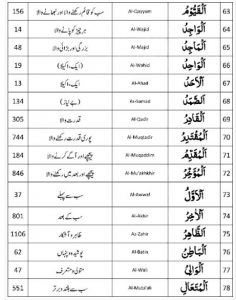 156 سب کو قائم رکھنے والا اور نبھانے والا Al-Qayyum اَلْقَيُّوْمُ 63
14 ہر چیز کو پانے والا Al-Wajid اَلْوَاجِدُ 64
48 بزرگی اور بڑائی والا Al-Majid اَلْمَاجِدُ 65
19 ایک (اکیلا) Al-Wahid اَلْوَاحِدُ 66
13 ایک (اکیلا) Al-Ahad اَلْاَحَدُ 67
134 بے نیاز As-Samad اَلصَّمَدُ 68
305 قدرت والا Al-Qadir اَلْقَادِرُ 69
744 پوری قدرت رکھنے والا Al-Muqtadir اَلْمُقْتَدِرُ 70
184 پیچھے اور آگے کرنے والا Al-Muqaddim اَلْمُقَدِّمُ 71
846 پیچھے اور بعد میں رکھنے والا Al-Mu'akhkhir اَلْمُؤَخِّرُ 72
37 سب سے پہلے Al-Awwal اَلْاَوَّلُ 73
801 سب کے بعد Al-Akhir اَلْاٰخِرُ 74
1106 ظاہر و آشکار Az-Zahir اَلظَّاهِرُ 75
62 پوشیدہ و پنہاں Al-Batin اَلْبَاطِنُ 76
47 متولی و متصرف Al-Wali اَلْوَالِيُ 77
551 سب سے بلند و برتر Al-Muta'ali اَلْمُتَعَالِ 78